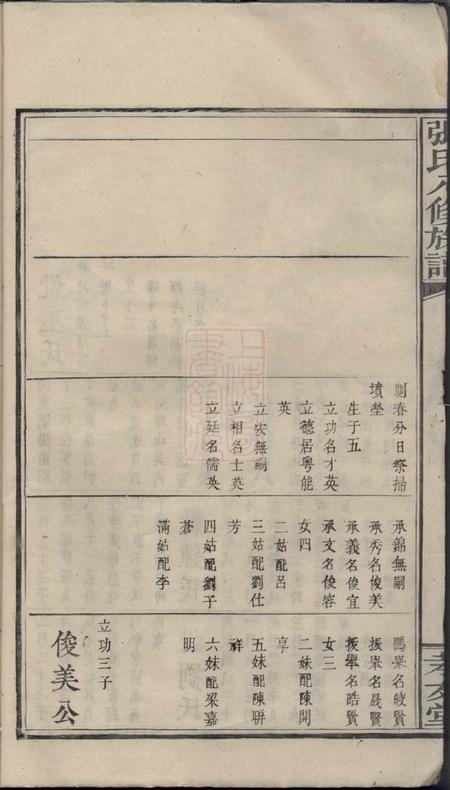 張氏八修族譜
則春分日祭掃
墳塋
生子五
立功名才英
立德居粵能
英
立安無嗣
立相名士英
立廷名儒英
承錦無嗣
承秀名俊美
承義名俊宜
承文名俊容
女四
二姑配呂
三姑配劉仕
芳
四姑配劉子
蒼
滿姑配李
舉名皎賢
振舉名晟賢
振舉名晧賢
女三
二妹配陳開
享
五妹配陳聯
祥
六妹配梁嘉
明
立功三子
俊美公
上海圖書館藏